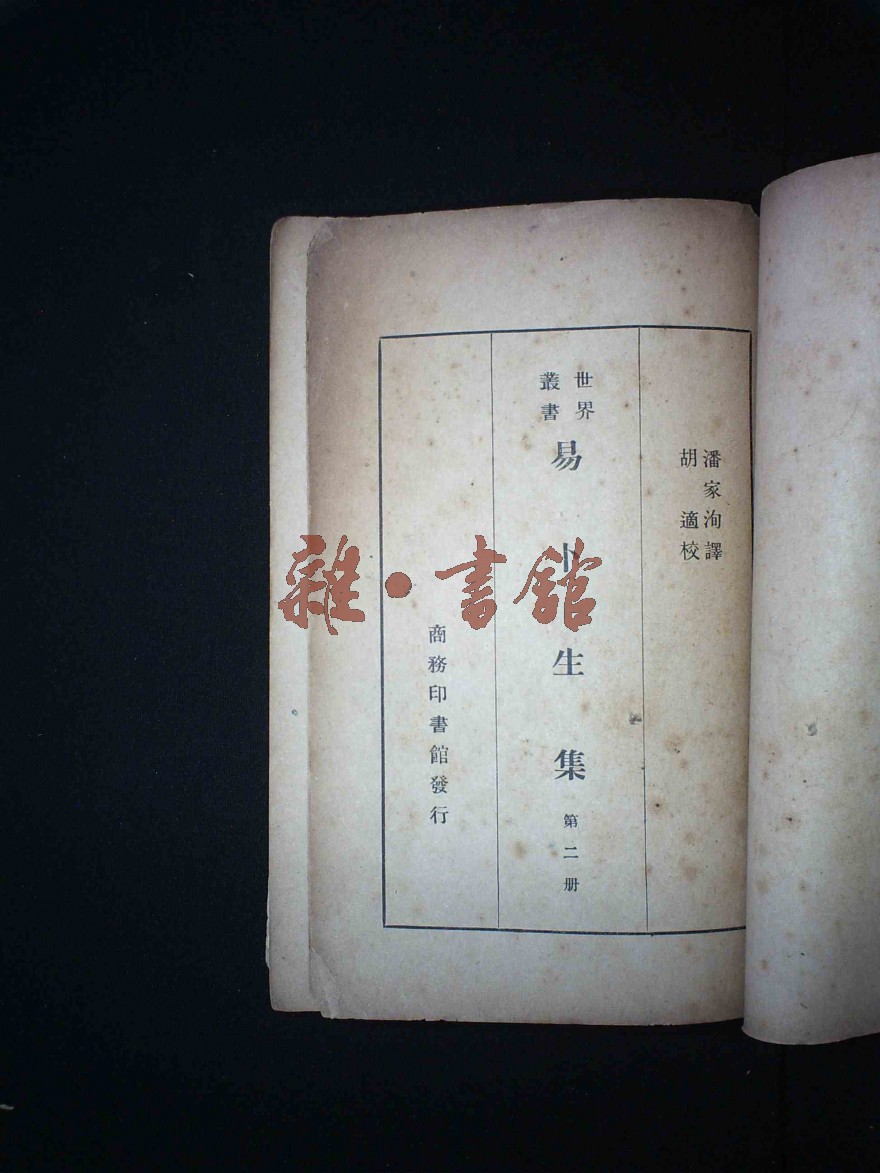 潘家洵譯
胡適校
世界
叢書
易卜生集 第二册
商務印書館發行
雜·書館